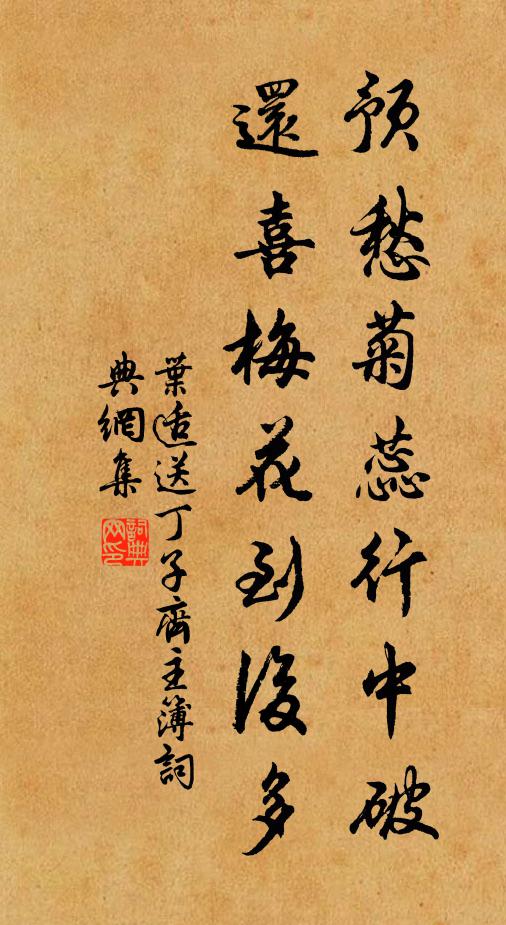 預愁菊蕊行中破
還喜梅花到後多
葉適送丁子齊主簿詞
典網集
詞典網印